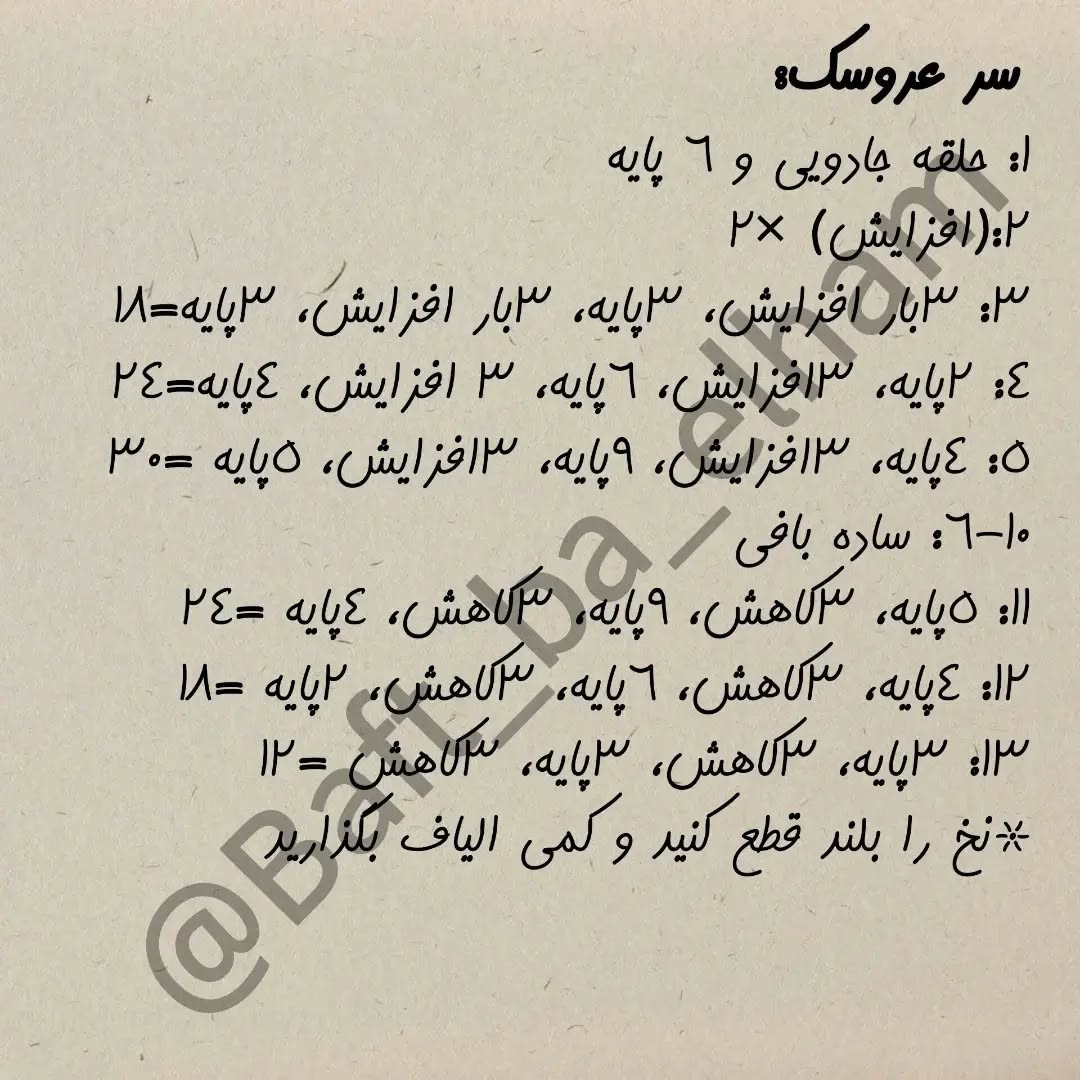 سر عروسک:
۱: حلقه جادویی و ٦ پایه
۲:(افزایش) ×۲
۳: ۳بار افزایش، ۳پایه، ۳بار افزایش، ۳پایه=۱۸
٤: ۲پایه، ۳افزایش، ٦پایه، ۳ افزایش، ٤پایه=۲٤
۵: ٤پایه، ۳افزایش، ۹پایه، ۳افزایش، ۵پایه =۳۰
۱۰-٦: ساده بافی
۱۱: ۵پایه، ۳کاهش، ۹پایه، ۳کاهش، ٤پایه =۲٤
۱۲: ٤پایه، ۳کاهش، ٦پایه، ۳کاهش، ۲پایه =۱۸
۱۳: ۳پایه، ۳کاهش، ۳پایه، ۳کاهش =۱۲
*نخ را بلند قطع کنید و کمی الیاف بگذارید
@Baft_ba_elham